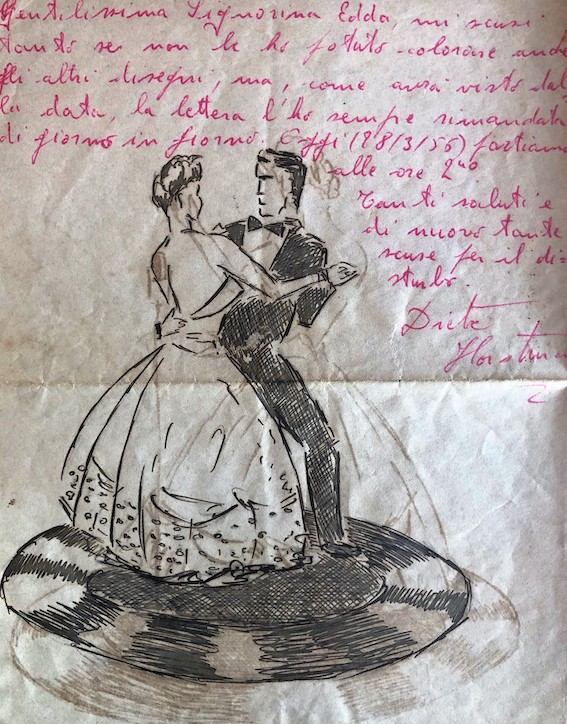 Gentilissima Signorina Edda, mi scusi
tanto se non le ho potuto colorare anche
gli altri disegni, ma, come avrà visto dal
la data, la lettera l'ho sempre rimandata
di giorno in giorno. Oggi (28/3/56) partiamo
alle ore 2
Tanti saluti e
di nuovo tante
scuse per il di=
sturbo.